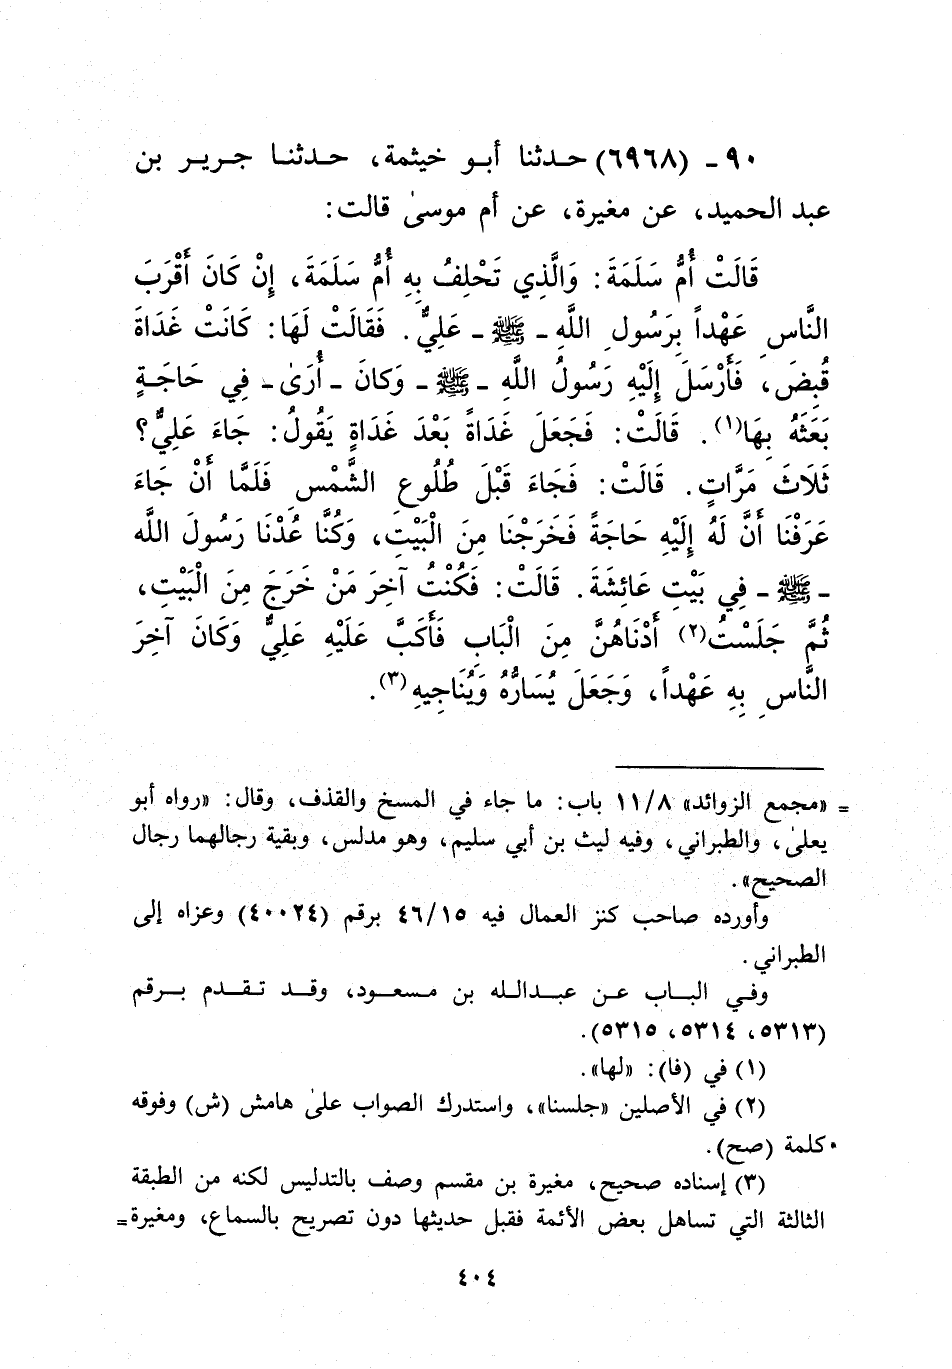 ٩٠ - (٦٩٦٨) حدثنا أبو خيثمة، حدثنا جرير بن
عبد الحميد، عن مغيرة، عن أم موسىٰ قالت:
قَالَتْ أُمُّ سَلَمَةَ: وَالَّذِي تَحْلِفُ بِهِ أُمُّ سَلَمَةَ، إِنْ كَانَ أَقْرَبَ
النَّاسِ عَهْداً بِرَسُولِ اللَّهِ - ﷺ - عَلِيٌّ. فَقَالَتْ لَهَا: كَانَتْ غَدَاةَ
قُبِضَ، فَأَرْسَلَ إِلَيْهِ رَسُولُ اللَّهِ - ﷺ - وَكانَ - أُرَىٰ - فِي حَاجَةٍ
بَعَثَهُ بِهَا(١). قَالَتْ: فَجَعَلَ غَدَاةً بَعْدَ غَدَاةٍ يَقُولُ: جَاءَ عَلِيٌّ؟
ثَلَاثَ مَرَّاتٍ. قَالَتْ: فَجَاءَ قَبْلَ طُلُوعِ الشَّمْسِ فَلَمَّا أَنْ جَاءَ
عَرَفْنَا أَنَّ لَهُ إِلَيْهِ حَاجَةً فَخَرَجْنَا مِنَ الْبَيْتِ، وَكُنَّا عُدْنَا رَسُولَ اللَّه
- ﷺ - فِي بَيْتِ عَائِشَةَ. قَالَتْ: فَكُنْتُ آخِرَ مَنْ خَرَجَ مِنَ الْبَيْتِ،
ثُمَّ جَلَسْتُ(٢) أَدْنَاهُنَّ مِنَ الْبَابِ فَأَكَبَّ عَلَيْهِ عَلِيٌّ وَكَانَ آخِرَ
النَّاسِ بِهِ عَهْداً، وَجَعَلَ يُسَارُّهُ وَيُنَاجِيهِ(٣).
= «مجمع الزوائد» ١١/٨ باب: ما جاء في المسخ والقذف، وقال: «رواه أبو
يعلىٰ، والطبراني، وفيه ليث بن أبي سليم، وهو مدلس، وبقية رجالهما رجال
الصحيح».
وأورده صاحب كنز العمال فيه ٤٦/١٥ برقم (٤٠٠٢٤) وعزاه إلى
الطبراني.
وفي الباب عن عبدالله بن مسعود، وقد تقدم برقم
(٥٣١٣، ٥٣١٤، ٥٣١٥).
(١) في (فا): «لها».
(٢) في الأصلين «جلسنا»، واستدرك الصواب علىٰ هامش (ش) وفوقه
كلمة (صح).
(٣) إسناده صحيح، مغيرة بن مقسم وصف بالتدليس لكنه من الطبقة
الثالثة التي تساهل بعض الأئمة فقبل حديثها دون تصريح بالسماع، ومغيرة =
٤٠٤